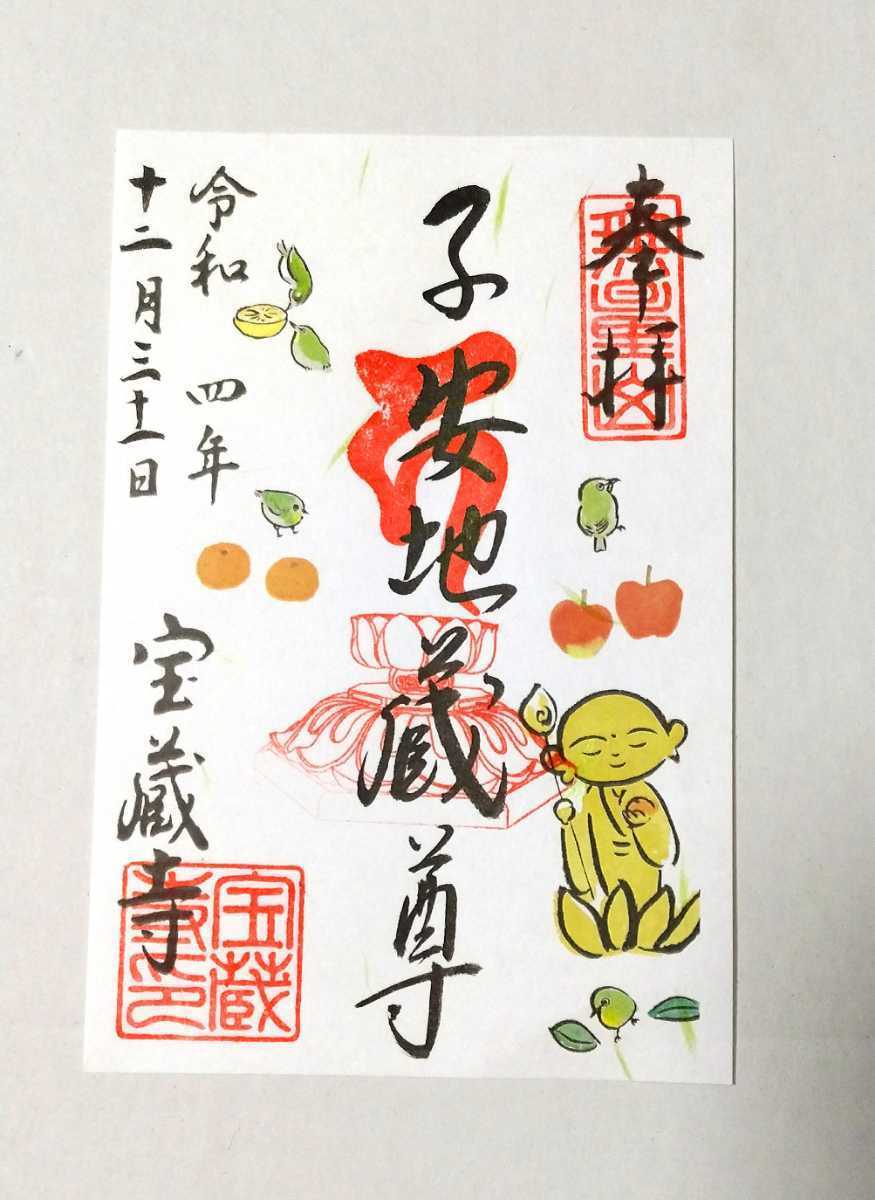 奉拝
子安地蔵尊
令和 四年
十二月三十一日
宝蔵寺
宝蔵
寺印